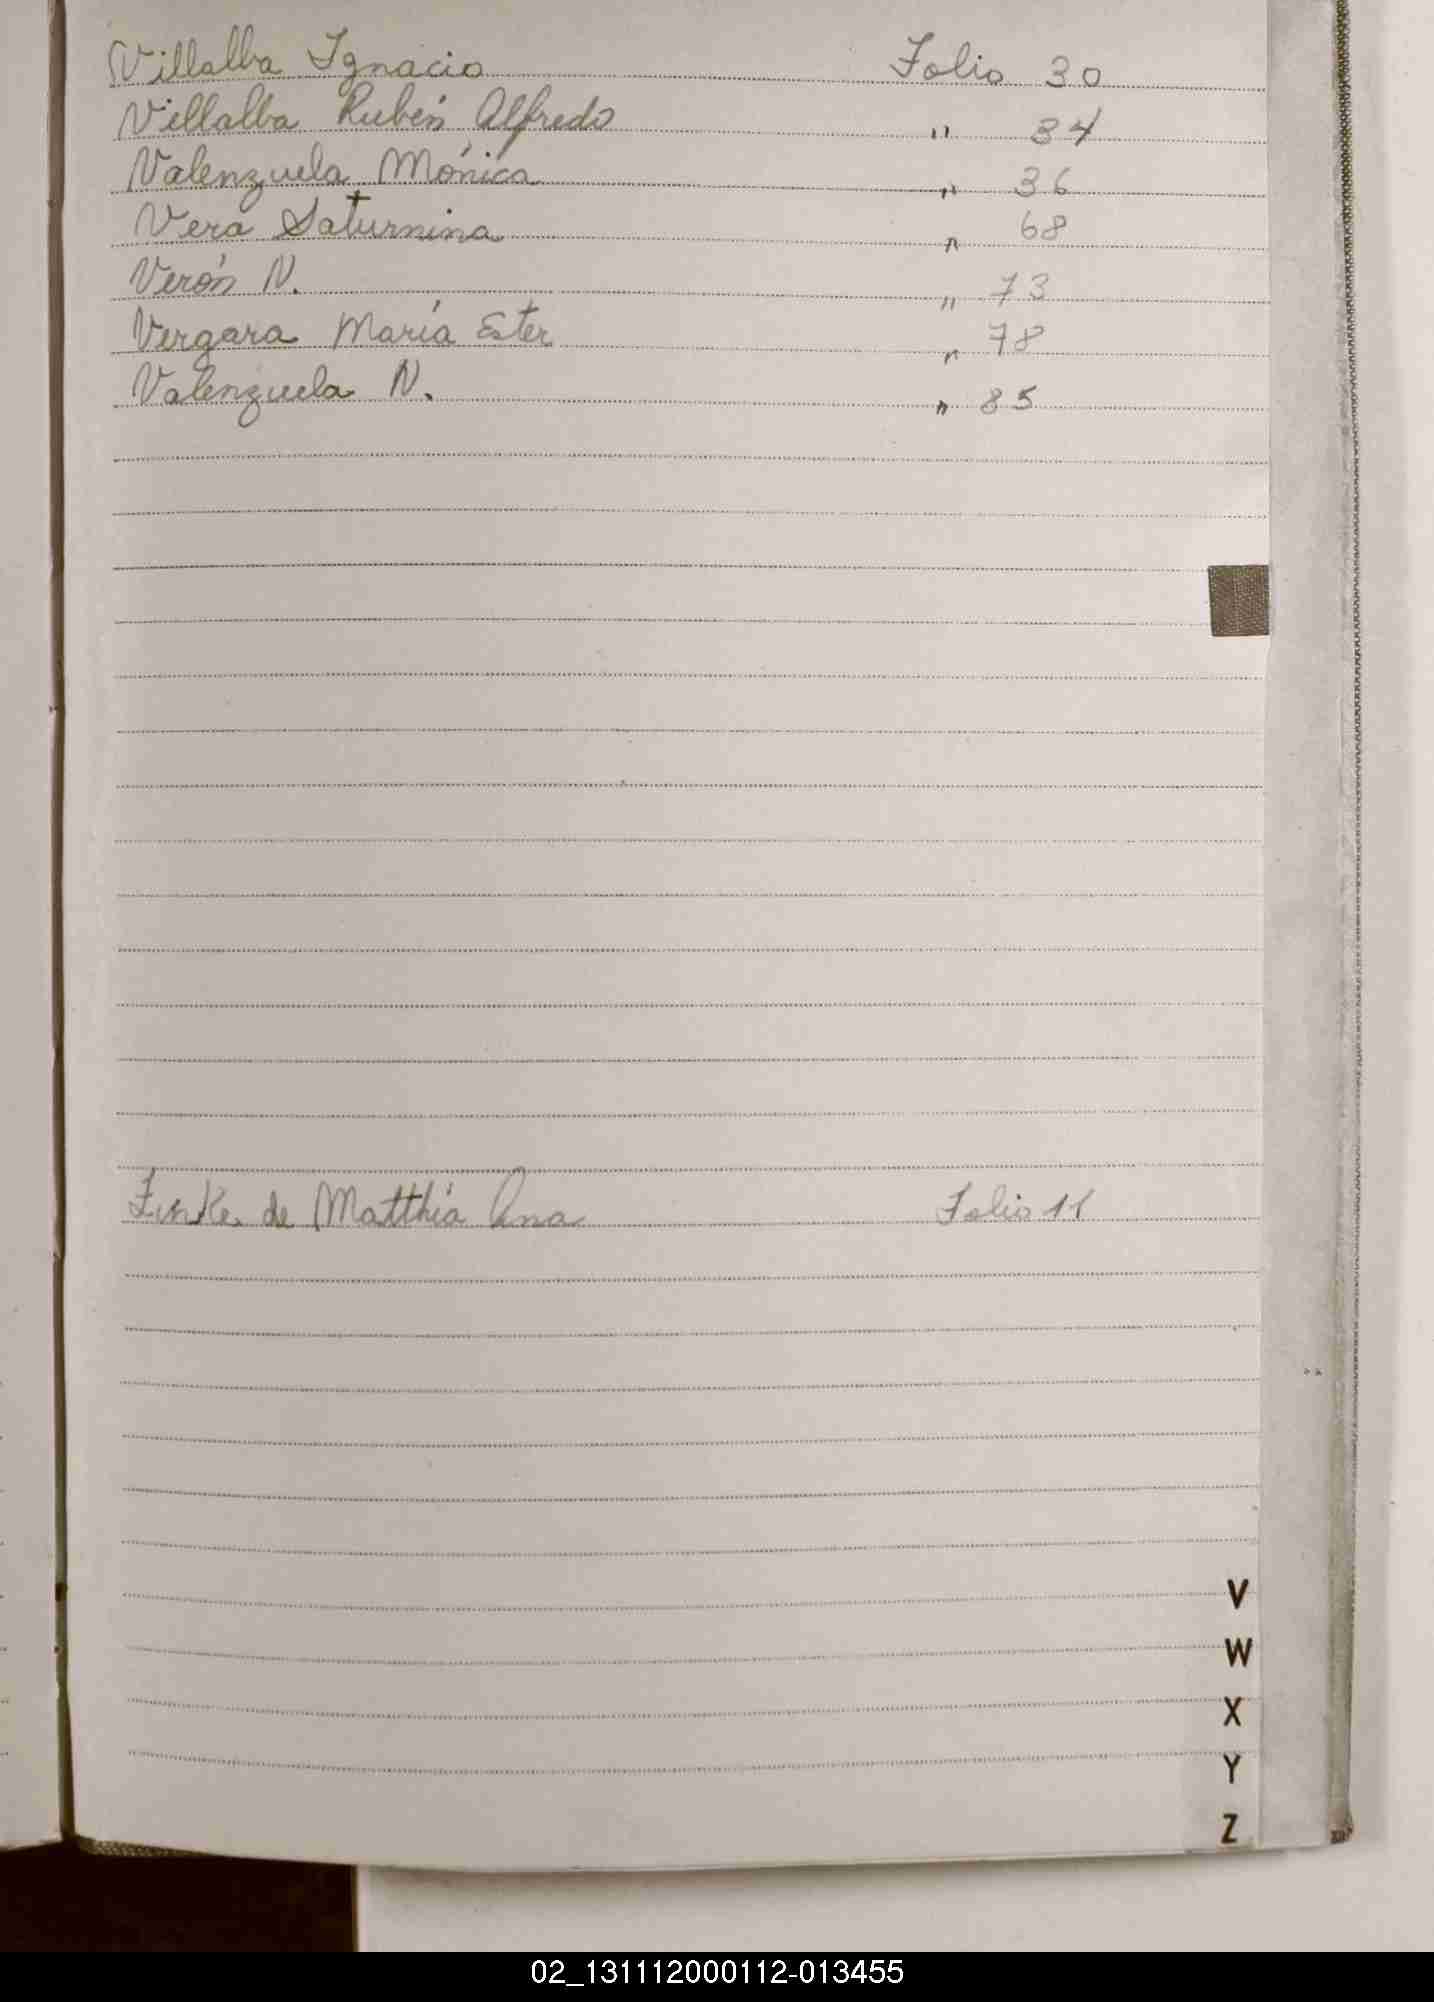 Villalba Ignacio Folio 30
Villalba Rubén Alfredo " 34
Valenzuela Mónica " 36
Vera Saturnina " 68
Verón N. " 73
Vergara María Ester " 78
Valenzuela N. " 85
de Matthia Ana Folio 11
V
W
X
Y
Z
02_131112000112-013455